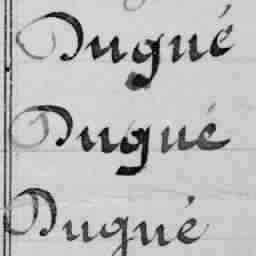 Dugué
Dugué
Dugué